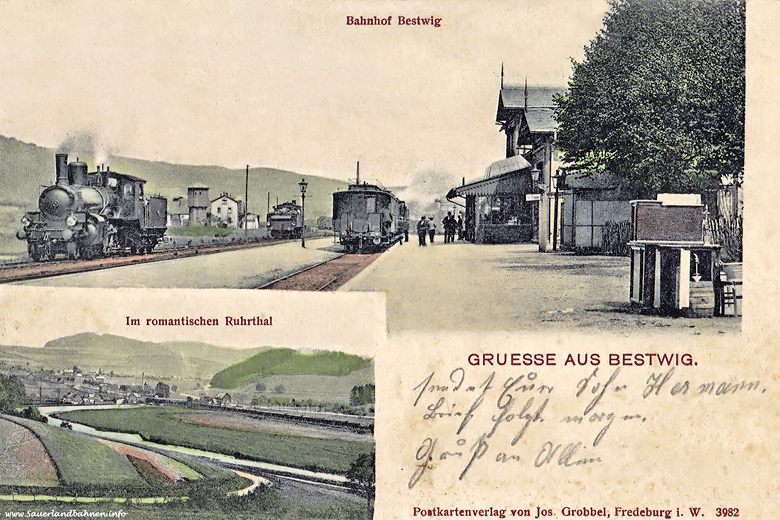 Bahnhof Bestwig
Im romantischen Ruhrthal
GRUESSE AUS BESTWIG.
sendet Euer Sohn Hermann.
Brief folgt morgen.
Gruß an Allen
Postkartenverlag von Jos. Grobbel, Fredeburg i. W. 3982
www.Sauerlandbahnen.info